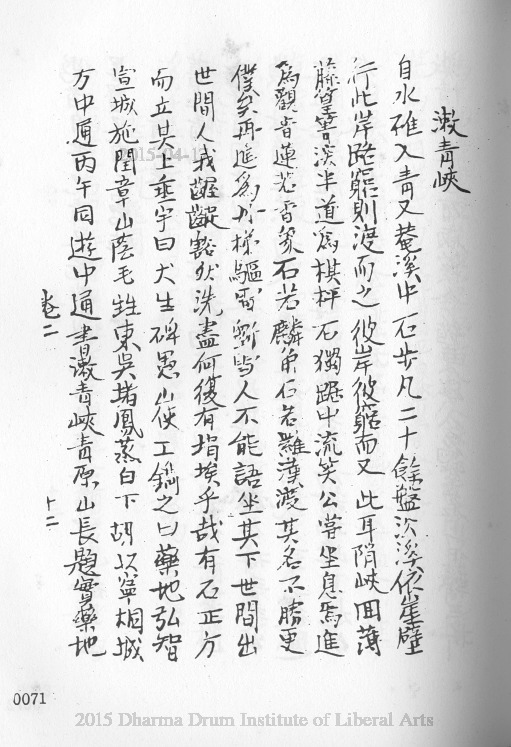 漱青峽
自水碓入青又菴溪中石步凡二十餘盤次溪依崖壁
行此岸路窮則渡而之彼岸彼窮而又此耳陗峽回薄
藤篁害溪半道為棋枰石獨踞中流笑公嘗坐息焉進
為觀音蓮若香象石若麟角石若難漢渡其名不勝更
僕矣再進為丹梯驅雷劉皆人不能語坐其下世間出
世間人我齷齪豁然洗盡何復有堛埃乎哉有石正方
而立其上垂字曰犬生碑愚山使工鐫之曰藥地弘智
宣城施閏章山蔭毛甡東吳堵鳳蒸白下胡以寧桐城
方中通丙午同遊中通書漱青峽青原山長題實藥地
卷二
十二
0071
2015-04-1
2015 Dharma Drum Institute of Liberal Arts